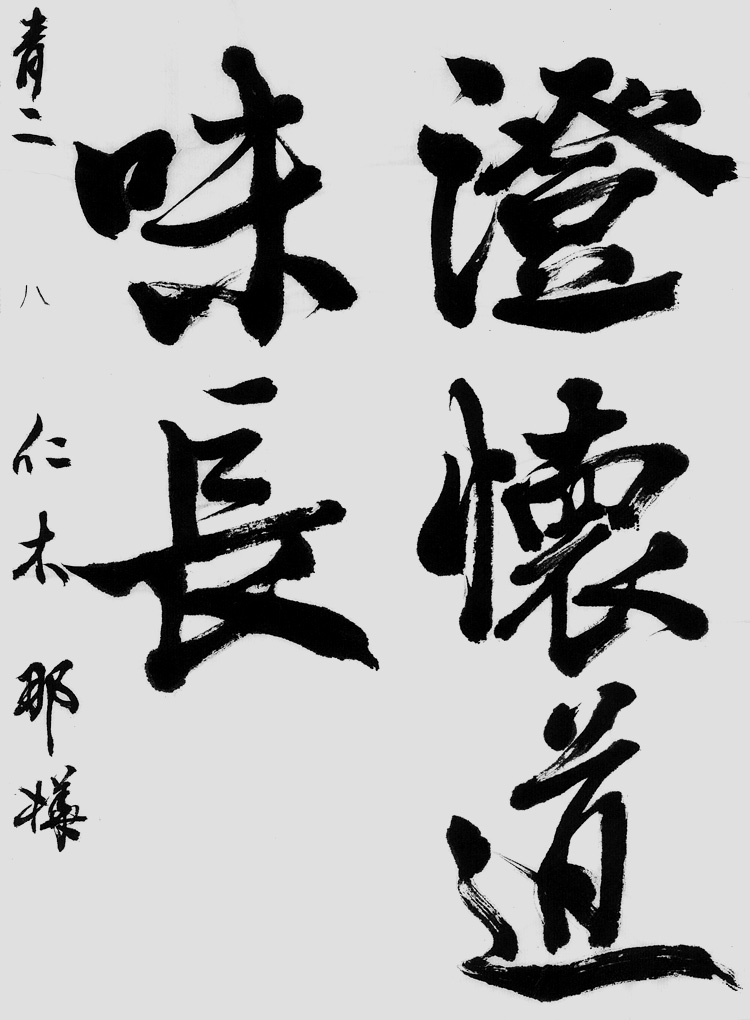 澄懷道
味長
青二 八 仁木那